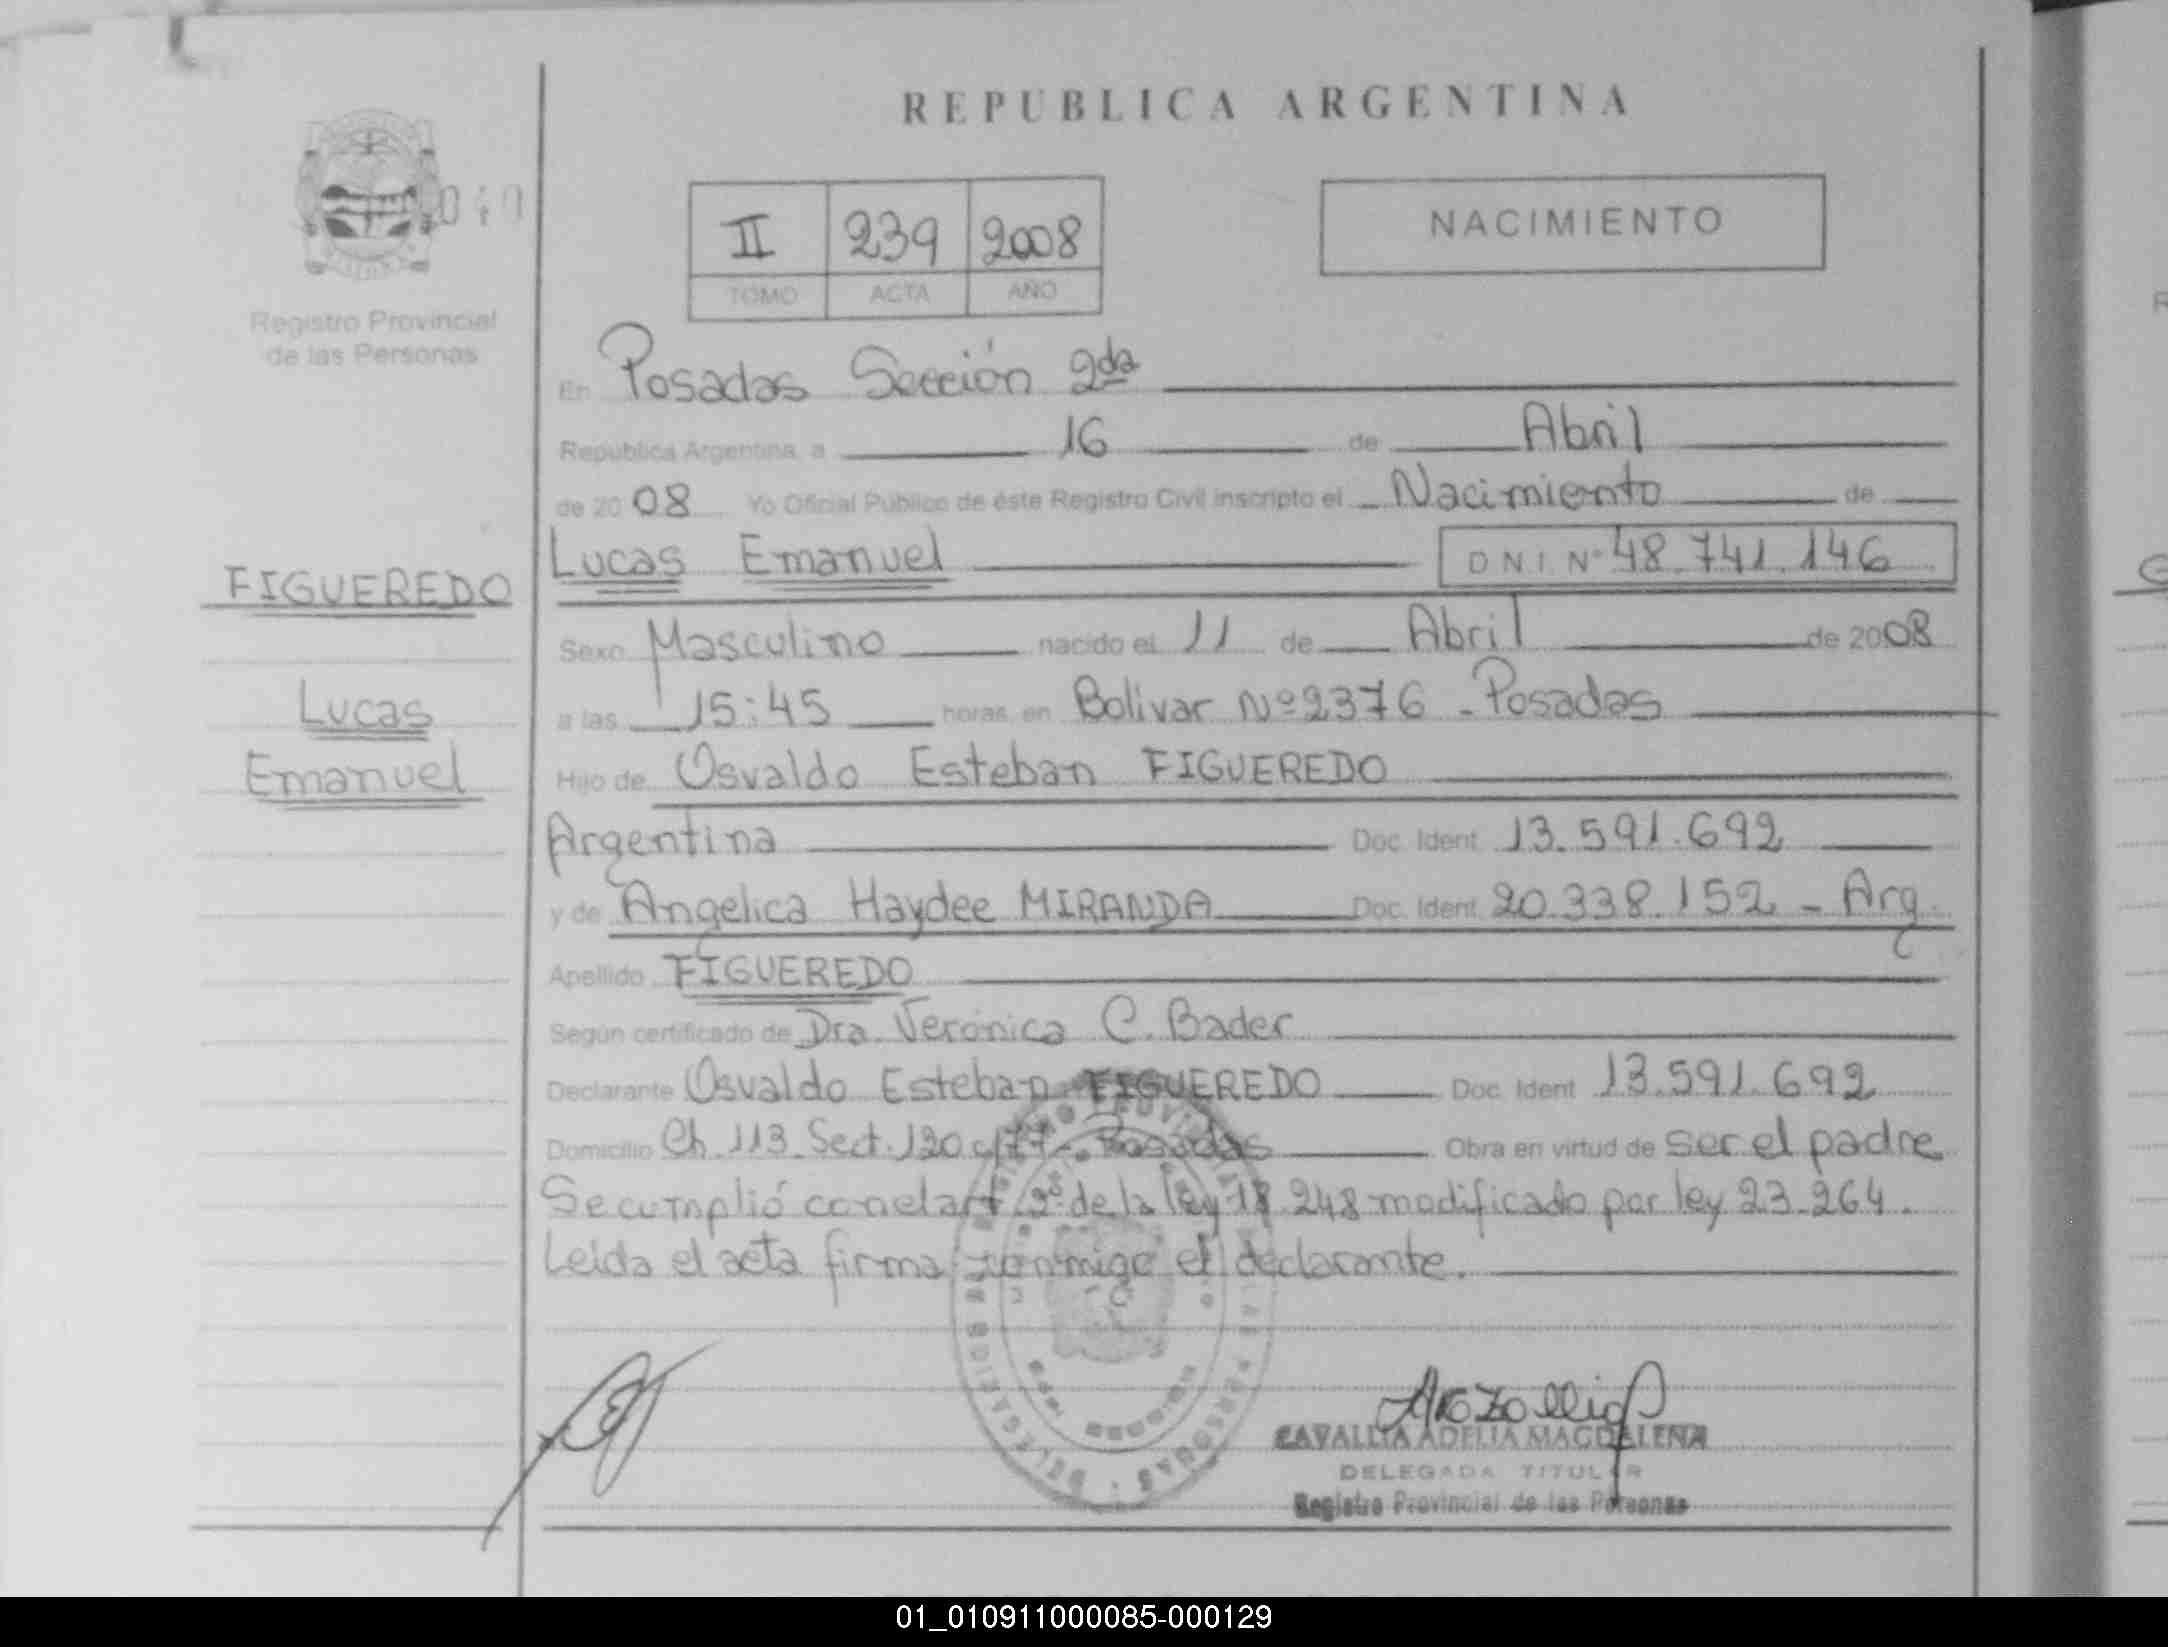 REPUBLICA ARGENTINA
040
Registro Provincial
de las Personas
II 239 2008
TOMO ACTA AÑO
NACIMIENTO
En Posadas Sección 2da
República Argentina, a 16 de Abril
de 2008 Yo Oficial Público de éste Registro Civil inscripto el Nacimiento de
Lucas Emanuel D N I. Nº 48.741.146
FIGUEREDO
Lucas
Emanuel
Sexo Masculino nacido el 11 de Abril de 2008
a las 15:45 horas en Bolivar Nº 2376 - Posadas
Hijo de Osvaldo Esteban FIGUEREDO
Argentina Doc. Ident. 13.591.692
y de Angelica Haydee MIRANDA Doc. Ident. 20.338.152 - Arg.
Apellido FIGUEREDO
Según certificado de Dra. Verónica C. Bader
Declarante Osvaldo Esteban FIGUEREDO Doc. Ident. 13.591.692
Domicilio Ch. 113 Sect. 120 c/77 - Posadas Obra en virtud de ser el padre
Se cumplió con el art. 2º de la ley 18.248 modificado por ley 23.264.
Leida el acta firma conmigo el declarante.
CAVALLIA ADELIA MAGDALENA
DELEGADA TITULAR
Registro Provincial de las Personas
01_010911000085-000129